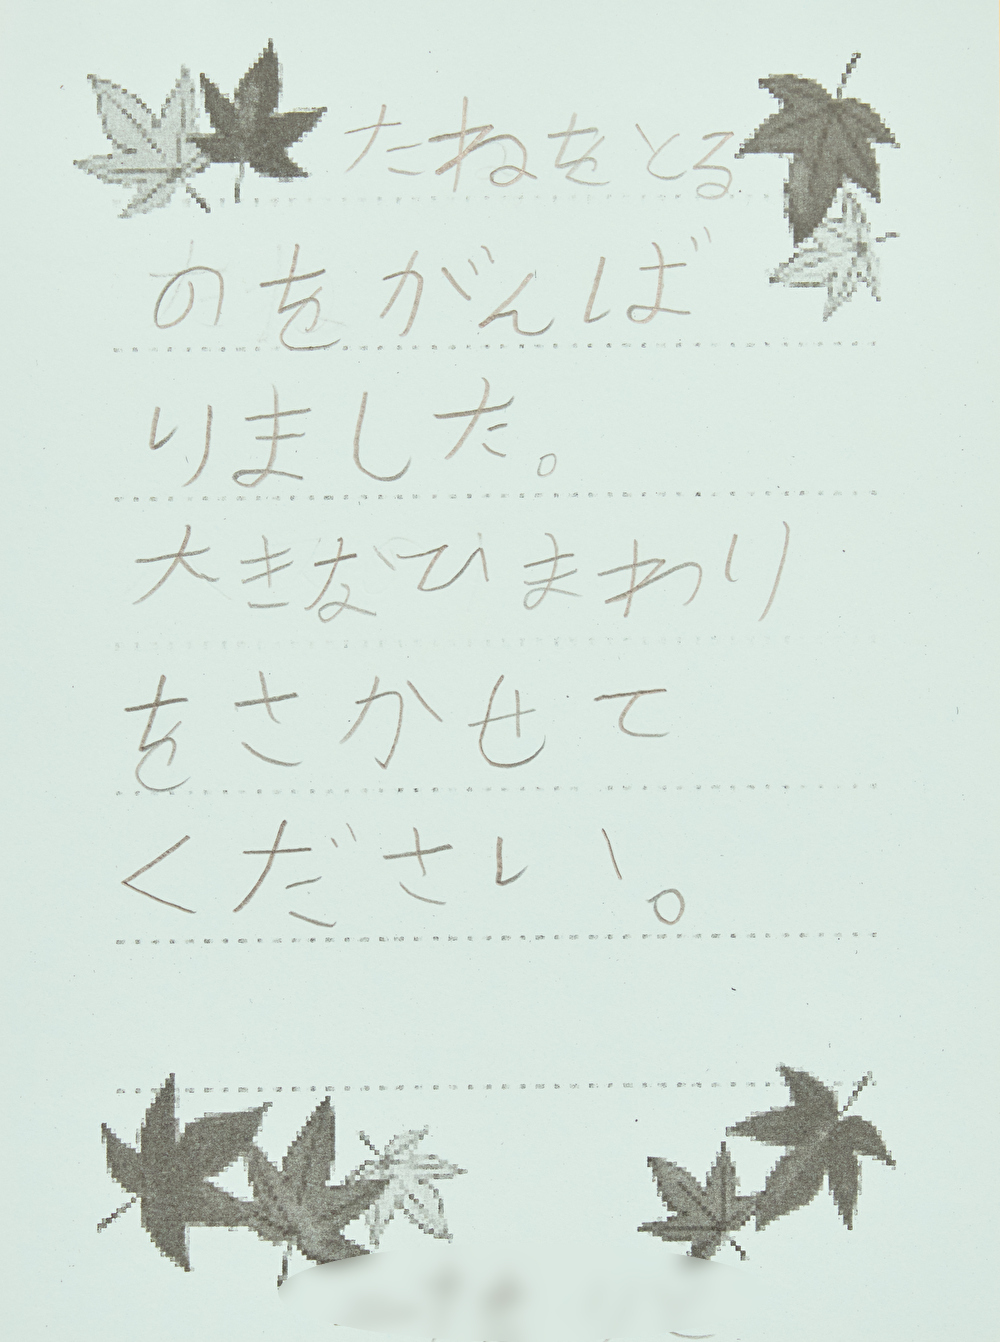 たねをとる
のをがんば
りました。
大きなひまわり
をさかせて
ください。